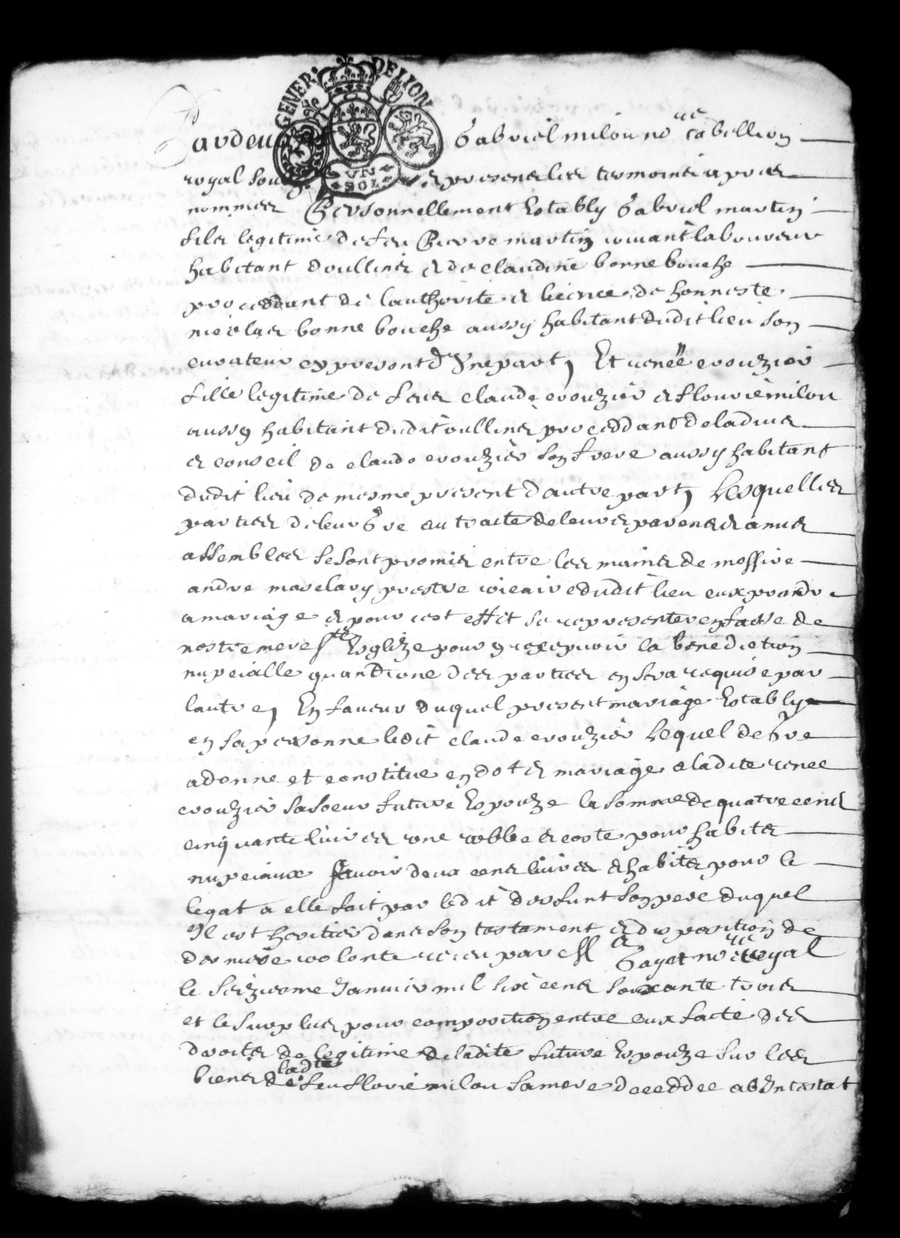 GENER. DE LION
UN SOL
Pardevant Gabriel milou no.re tabellion
royal sou et presens les tesmoins apres
nommes Personnellement Estably Gabriel martin
fils legitime de feu Pierre martin vivant laboureur
habitant doullins et de claudine bonnebouche
procedant de lauthorite et licence de honneste
nicolas bonne bouche aussy habitant dudit lieu son
curateur expres ont d'Une part, Et renee crouzier
fille legitime de feu claude crouzier et flourie milou
aussy habitant dudit oullins procedant de ladvis
et conseil de claude crouzier son frere aussy habitant
dudit lieu de mesme present d'autre part, Lesquelles
parties de leur gre au traite de leurs parens et amis
assembles se sont promis entre les mains de messire
andre maselary prestre vicaire dudit lieu eux prandre
a mariage et pour cest effet se representer en fasse de
nostre mere s.te Esglize pour y recepvoir la benediction
nupcialle quand l'une des parties en sera requise par
lautre, En faveur duquel present mariage Estably
en sa personne ledit claude crouzier Lequel de gre
a donne et constitue en dot et mariage a ladite renee
crouzier sa soeur future Espouze la somme de quatre cens
cinquante livres une robbe et cotte pour habits
nupciaux scavoir deux cens livres et habits pour le
legat a elle fait par ledit deffunt son pere duquel
Il est heritier dans son testament et disposition de
derniere volonte receu par M.e Gayot no.re royal
le seizieme Janvier mil six cens soixante trois
et le surplus pour composition entre eux faite des
droits de legitime de ladite future Espouze sur les
biens de ladite feu florie milou sa mere deceddee abIntestat